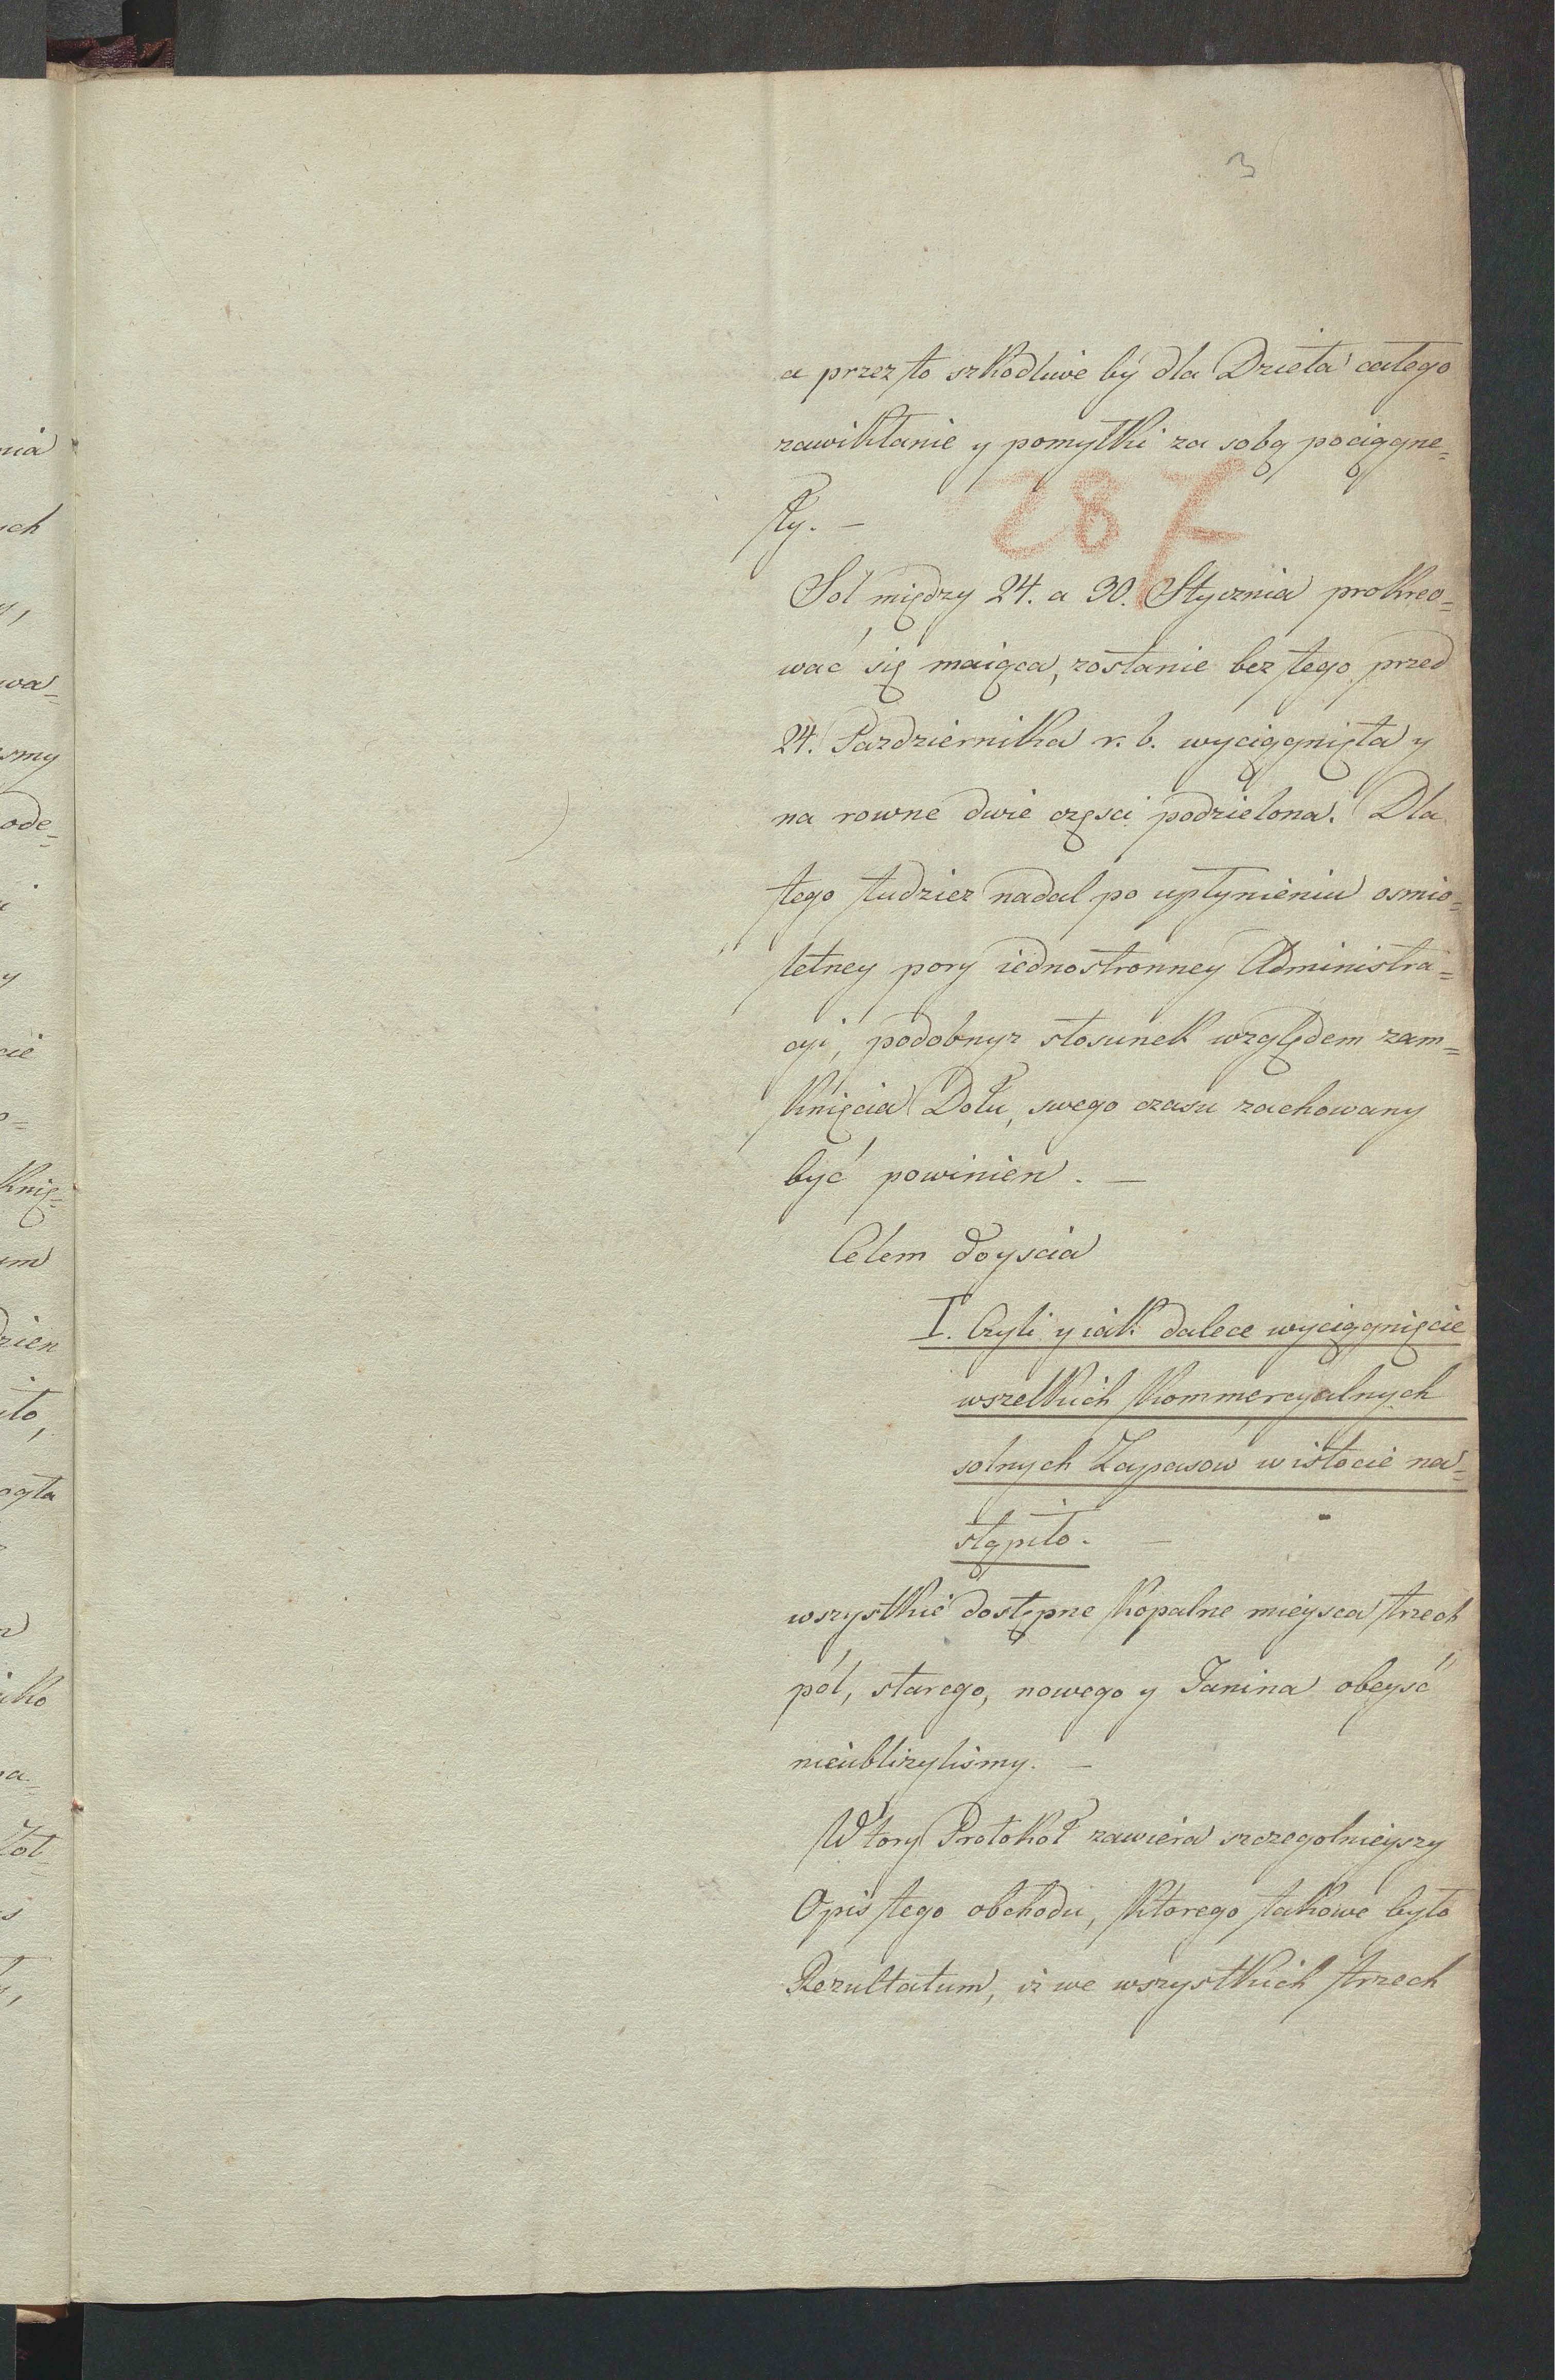 3
a przez to szkodliwe by dla Dzieła całego
zawikłanie y pomyłki za sobą pociągne=
ły. —
287
Sol między 24. a 30. Stycznia prokreo=
wać się maiąca, zostanie bez tego przed
24. Pazdziernika r. b. wyciągnięta y
na rowne dwie częsci podzielona. Dla
tego tudziez nadal po upłynieniu osmio=
letney pory iednostronney Administra=
cyi, podobnyz stosunek względem zam=
knięcia Dołu, swego czasu zachowany
być powinien. —
Celem doyscia
I. Czyli y iak dalece wyciągnięcie
wszelkich kommercyalnych
solnych Zapasow w istocie na=
stąpiło. —
wszystkie dostępne kopalne mieysca trzech
pól, starego, nowego y Janina obeyść
nieubliżylismy. —
Wtory Protokoł zawiera szczegolnieyszy
Opis tego obchodu, ktorego takowe było
Rezultatum, iz we wszystkich trzech
nia
ych
wa=
smy
ode=
y
cie
knię=
um
dzien
iło,
ięta